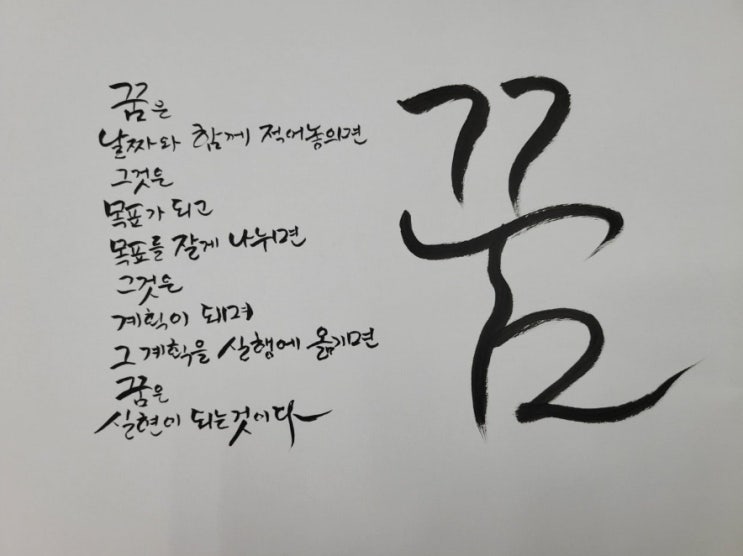 꿈은
날짜와 함께 적어놓으면
그것은
목표가 되고
목표를 잘게 나뉘면
그것은
계획이 돼며
그 계획을 실행에 옮기면
꿈은
실현이 되는것이다
꿈